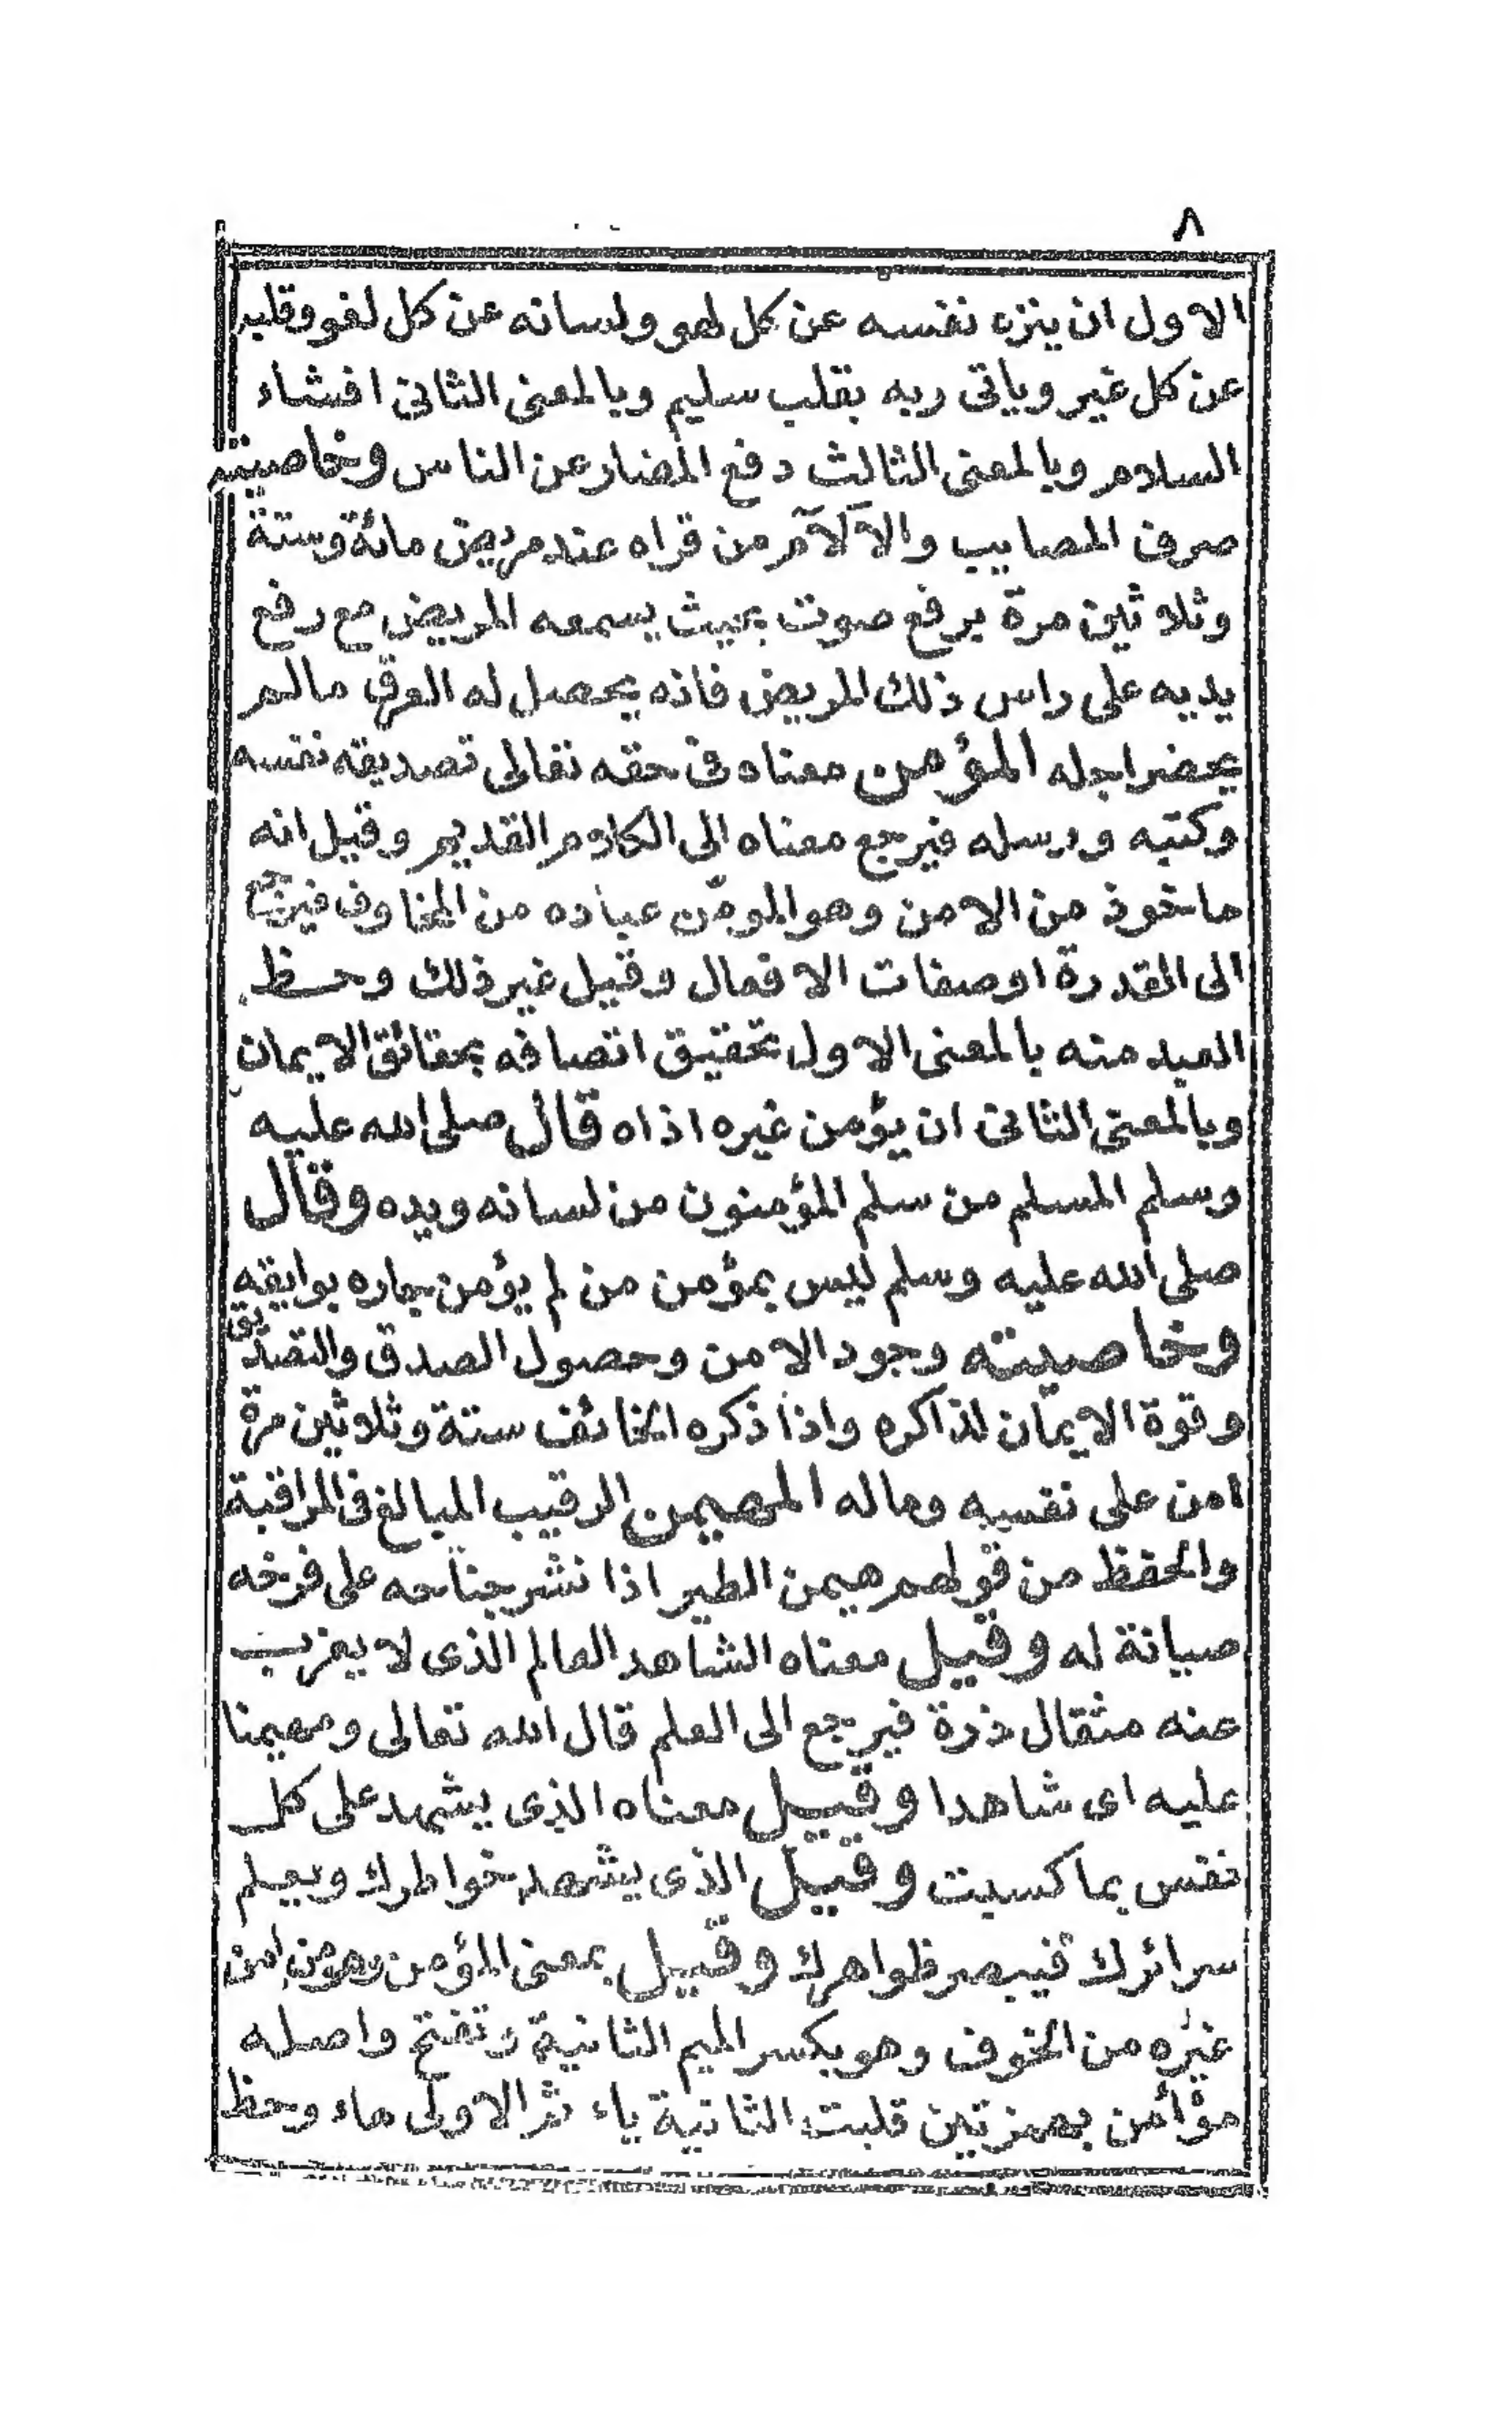 ٨
الاول ان ينزه نفسه عن كل لهو ولسانه عن كل لغو وقلبه
عن كل غير وياتى ربه بقلب سليم وبالمعنى الثانى افشاء
السلام وبالمعنى الثالث دفع المضار عن الناس وخاصيته
صرف المصايب والآلآم من قراه عند مريض مائة وستة
وثلاثين مرة برفع صوت بحيث يسمعه المريض مع رفع
يديه على راس ذلك المريض فانه يحصل له مالم
يحضر اجله المؤمن معناه فى حقه تعالى تصديقه نفسه
وكتبه ورسله فيرجع معناه الى الكلام القديم وقيل انه
ماخوذ من الامن وهو المومّن عباده من المخاوف فيرجع
الى القدرة اوصفات الافعال وقيل غير ذلك وحظ
العبد منه بالمعنى الاول تحقيق اتصافه بحقائق الايمان
وبالمعنى الثانى ان يؤمن غيره اذاه قال صلى الله عليه
وسلم المسلم من سلم المؤمنون من لسانه ويده وقال
صلى الله عليه وسلم ليس بمؤمن من لم يؤمن جاره بوايقه
وخاصيته وجود الامن وحصول الصدق والتصديق
وقوة الايمان لذاكره واذا ذكره الخائف ستة وثلاثين مرة
امن على نفسه وماله المهيمن الرقيب المبالغ فى المراقبة
والحفظ من قولهم هيمن الطير اذا نشر جناحه على فرخه
صيانة له وقيل معناه الشاهد العالم الذى لا يعزب
عنه مثقال ذرة فيرجع الى العلم قال الله تعالى ومهيمنا
عليه اى شاهدا وقيل معناه الذى يشهد على كل
نفس بما كسبت وقيل الذى يشهد خواطرك ويعلم
سرائرك فيبصر ظواهرك وقيل بمعنى المؤمن من امن
غيره من الخوف وهو بكسر الميم الثانية وتفتح واصله
مؤأمن بهمزتين قلبت الثانية ياء ثم الاولى هاء وحظ